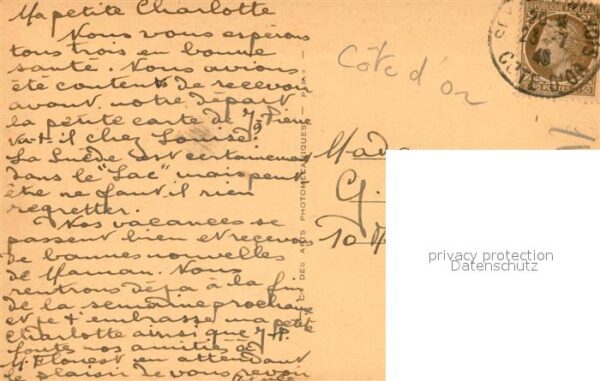 Ma petite Charlotte
Nous vous espérons
tous trois en bonne
santé. Nous avions
été contents de recevoir
avant notre départ
la petite carte de J. Pierre
va-t-il chez Louise?
La Suède est certainement
dans le "Lac" mais peut
être ne faut il rien
regretter.
Nos vacances se
passent bien et recevons
de bonnes nouvelles
de Maman. Nous
rentrons déjà à la fin
de la semaine prochaine
et je t'embrasse ma petite
Charlotte ainsi que J.P.
toutes nos amitiés à
M. en attendant
le plaisir de vous revoir
Côte d'Or
DES ARTS PHOTOMÉCANIQUES
CÔTE D'OR
Mad
G.
10
privacy protection
Datenschutz